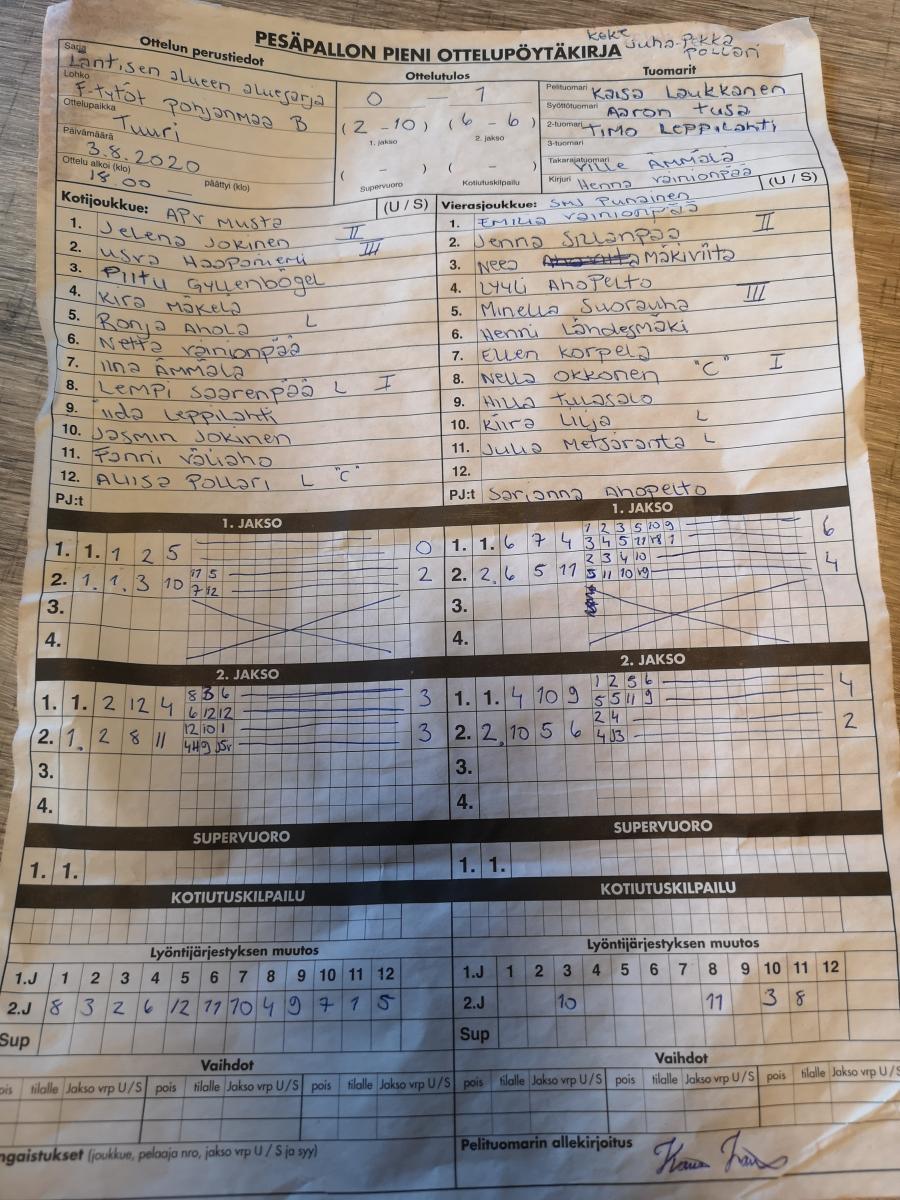 PESÄPALLON PIENI OTTELUPÖYTÄKIRJA
Keke Juha-Pekka Pollari
Ottelun perustiedot
Sarja Läntisen alueen aluesarja
Lohko F-tytöt Pohjanmaa B
Ottelupaikka Tuuri
Päivämäärä 3.8.2020
Ottelu alkoi (klo) 18.00 päättyi (klo)
Ottelutulos
0 — 1
(2 - 10) (6 - 6)
1. jakso 2. jakso
( - ) ( - )
Supervuoro Kotiutuskilpailu
Tuomarit
Pelituomari Kaisa Laukkanen
Syöttötuomari Aaron Tusa
2-tuomari Timo Leppilahti
3-tuomari
Takarajatuomari Ville Ämmälä
Kirjuri Henna Vainionpää
Kotijoukkue: APV Musta (U / S)
1. Jelena Jokinen II
2. Usva Haapaniemi III
3. Piitu Gyllenbögel
4. Kira Mäkelä
5. Ronja Ahola L
6. Netta Vainionpää
7. Iina Ämmälä
8. Lempi Saarenpää L I
9. Iida Leppilahti
10. Jasmin Jokinen
11. Fanni Väliaho
12. Aliisa Pollari L "C"
PJ:t
Vierasjoukkue: SMJ Punainen (U / S)
1. Emilia Vainionpää
2. Jenna Sillanpää II
3. Neea Mäkiviita
4. Lyyli Ahopelto
5. Minella Suorauha III
6. Henni Lähdesmäki
7. Ellen Korpela
8. Nella Okkonen "C" I
9. Hilla Tulasalo
10. Kiira Lilja L
11. Julia Metsäranta L
12.
PJ:t Sarianna Ahopelto
1. JAKSO
1. 1. 1 2 5 0
2. 1. 1. 3 10 11 5 2
7 12
3.
4.
1. JAKSO
1 2 3 5 10 9
1. 1. 6 7 4 3 4 5 11 8 1 6
2 3 4 10
2. 2. 6 5 11 5 11 10 9 4
3.
4.
2. JAKSO
8 3 6
1. 1. 2 12 4 6 12 12 3
12 10 1
2. 1. 2 8 11 3
3.
4.
2. JAKSO
1 2 5 6
1. 1. 4 10 9 5 5 11 9 4
2 4
2. 2. 10 5 6 4 J3 2
3.
4.
SUPERVUORO
1. 1.
SUPERVUORO
1. 1.
KOTIUTUSKILPAILU
KOTIUTUSKILPAILU
Lyöntijärjestyksen muutos
1.J 1 2 3 4 5 6 7 8 9 10 11 12
2.J 8 3 2 6 12 11 10 4 9 7 1 5
Sup
Lyöntijärjestyksen muutos
1.J 1 2 3 4 5 6 7 8 9 10 11 12
2.J 10 11 3 8
Sup
Vaihdot
ois tilalle Jakso vrp U / S pois tilalle Jakso vrp U / S pois tilalle Jakso vrp U / S
Vaihdot
pois tilalle Jakso vrp U / S pois tilalle Jakso vrp U / S pois tilalle Jakso vrp U / S
ngaistukset (joukkue, pelaaja nro, jakso vrp U / S ja syy)
Pelituomarin allekirjoitus